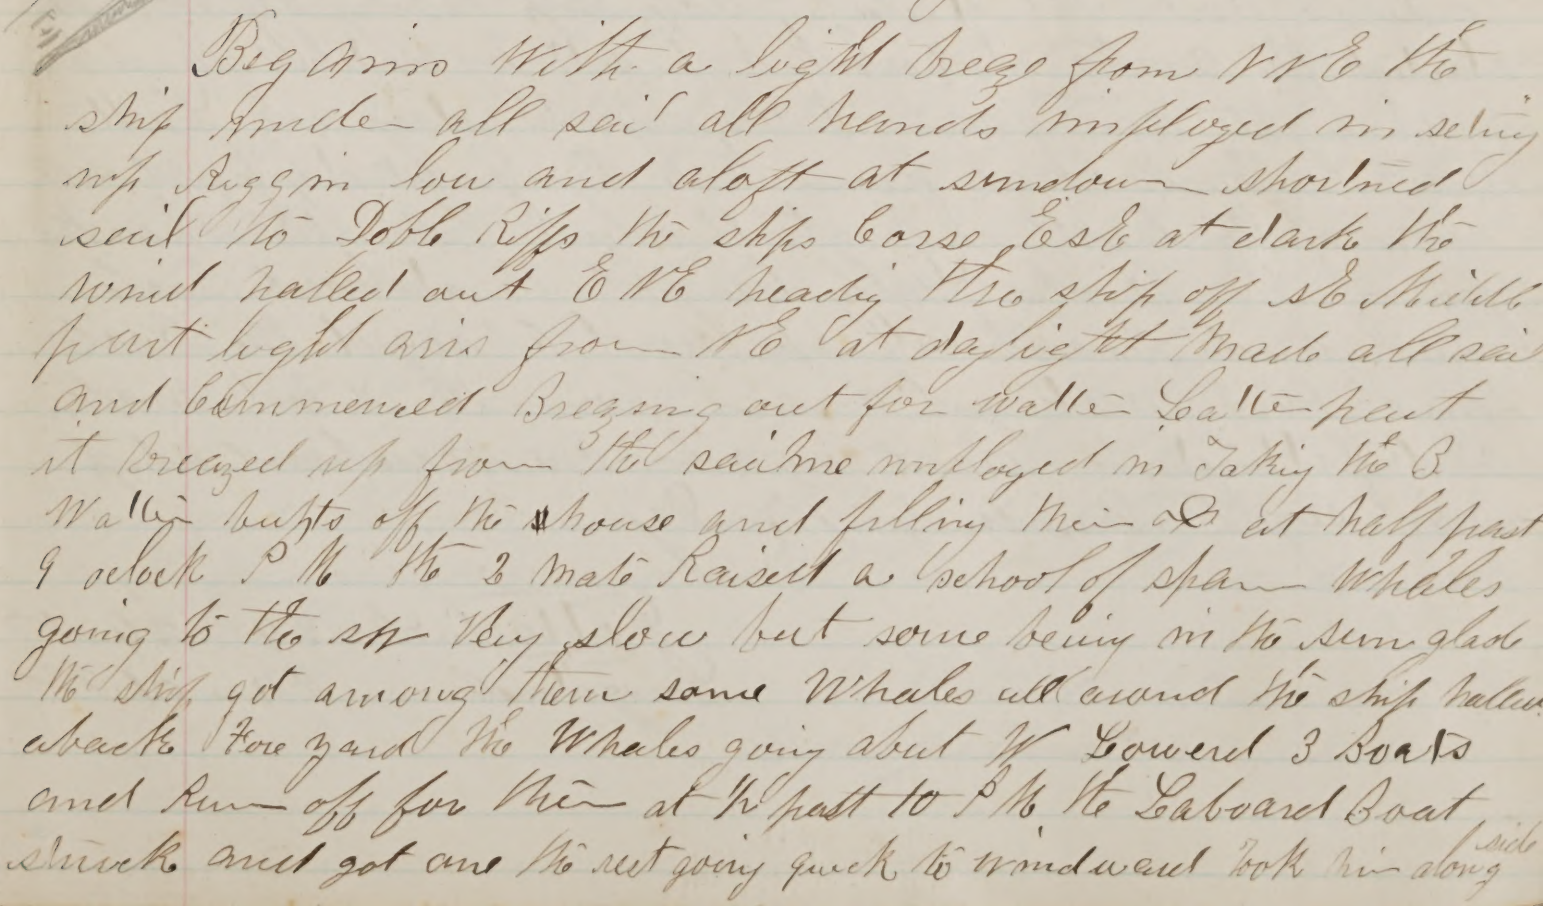 Begains With a light breaze from NNE the
ship under all sail all hands imployed in seting
up Riggin low and aloft at sundown shortned
sail to Doble Riffs the ships Corse EsE at dark the
wind halled out ENE headig the ship off SE Middle
part light airs from NE at daylight Made all sail
and Commenced Breazing out for Watter Latter part
it breazed up from the saime imployed in Takig the
Watter butts off the house and filling them at half past
9 oclock P M the 2 Mate Raised a school of sparm Whales
going to the SW Very slow but some being in the sun glade
the ship got among them some Whales all around the ship halled
aback Fore yard the Whales going about W Lowerd 3 Boats
and Run off for them at 1/2 past 10 P M the Laboard Boat
struck and got one the rest going quick to windward Took him along side